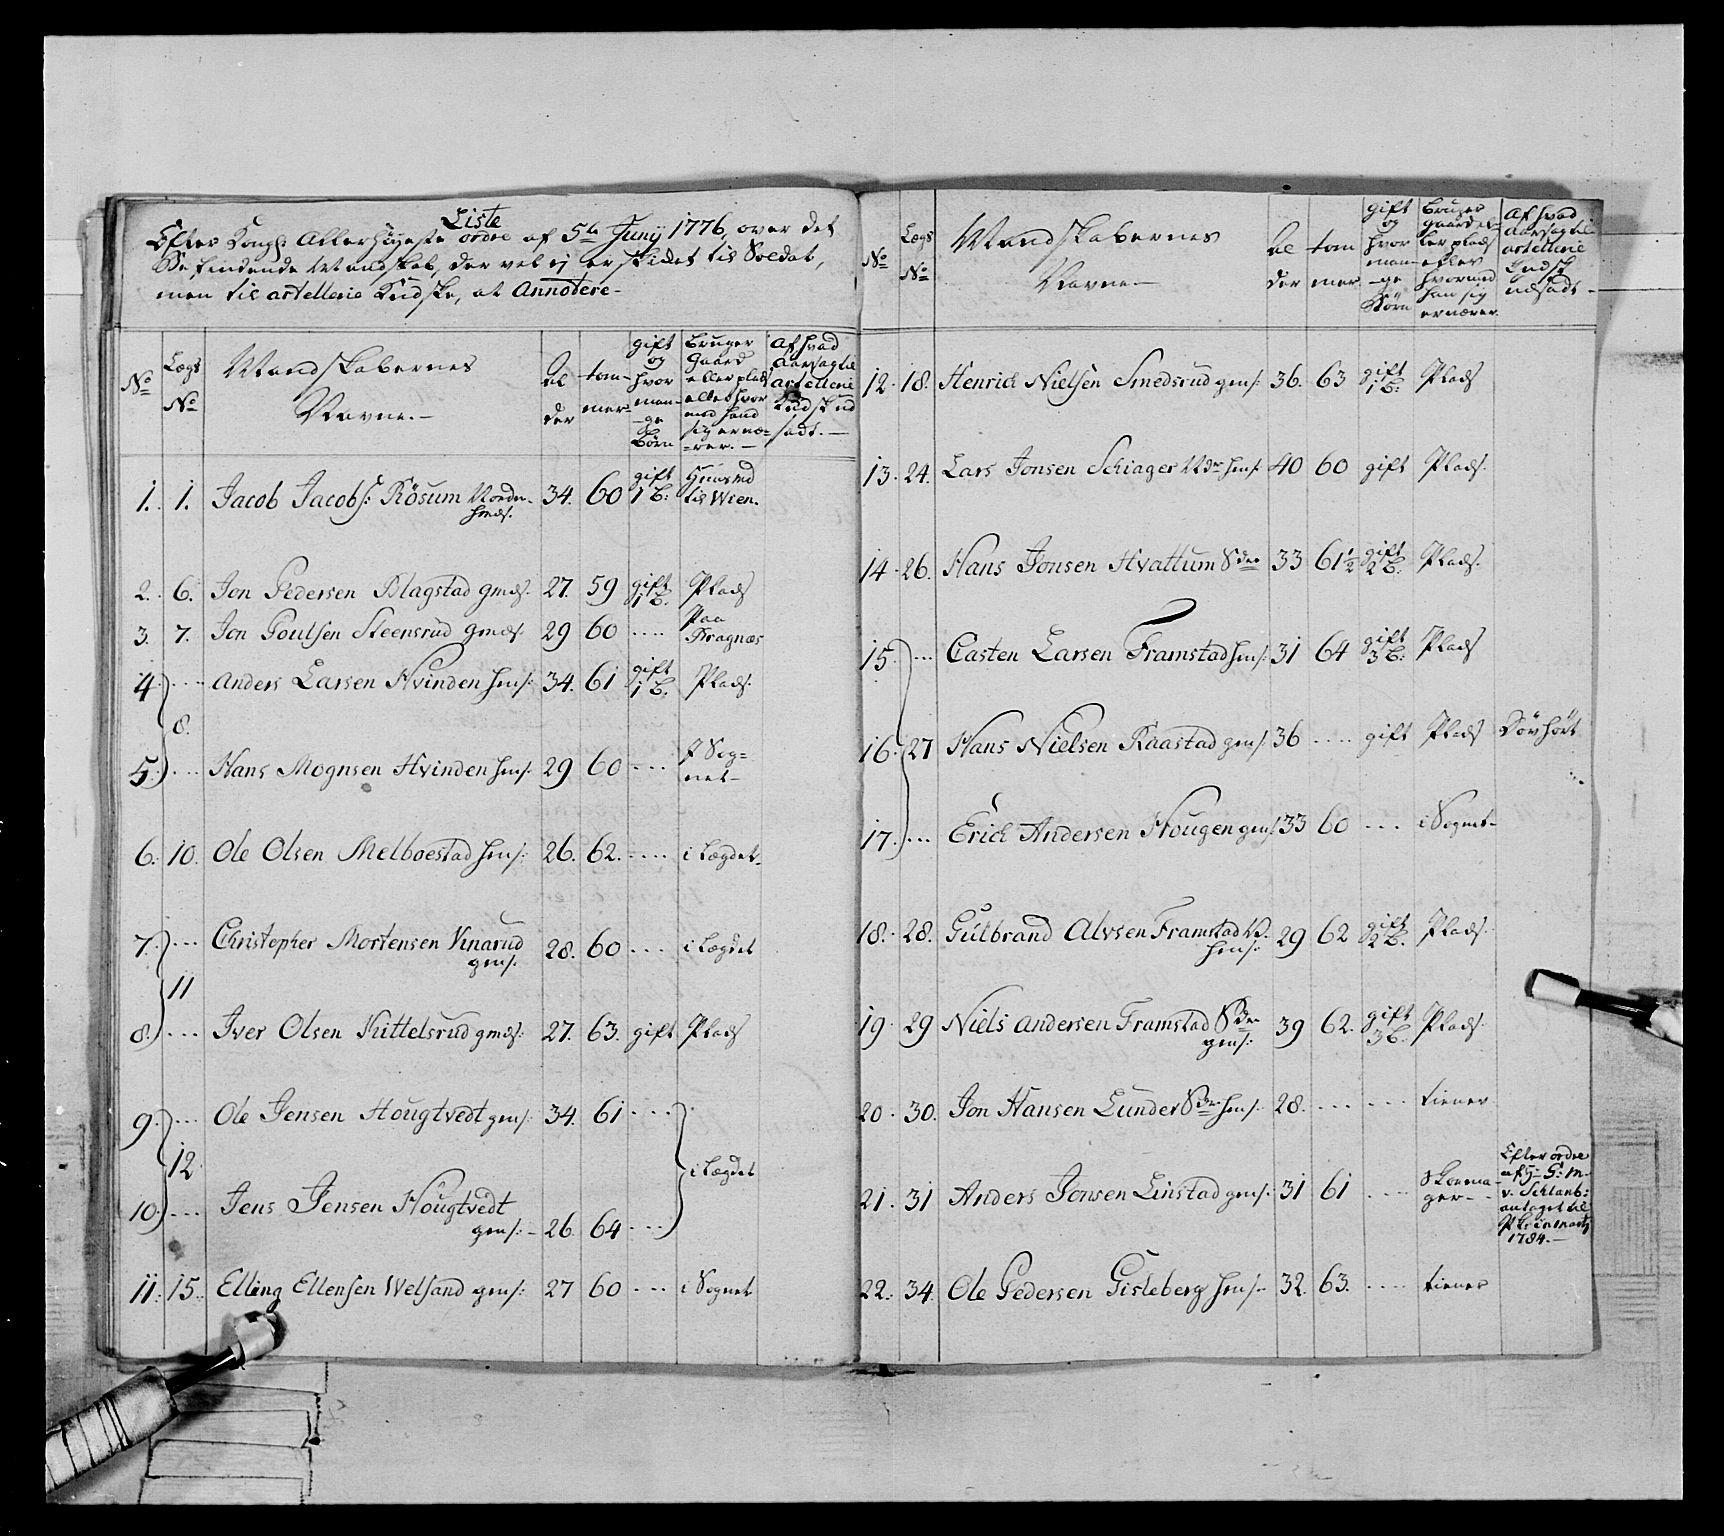 Liste
Efter Kongl: Allerhøyeste ordre af 5te Junij 1776, over det
Befindende Mandskab, der vel ej er skicket til Soldat,
men til artellerie Kudske, at Annotere
No
Lægs No
Mandskabernes Navne.
al der
tom mer
gift og hvor man-ge Börn
bruger gaard eller plads eller hvor med hand sig ernæ-rer.
af hvad Aarsag til artellerie Kudsk ud sadt.
1. 1. Jacob Jacobs: Rösum Norder hmds. 34. 60 gift 1 B: til Wien.
2. 6. Jon Pedersen Blagstad gmds. 27. 59 gift 1 B. Plads
3. 7. Jon Poulsen Steensrud gmds. 29 60 .... Paa Kragnæs
4 .... Anders Larsen Hvinden hms: 34. 61 gift 1 B. Plads.
8.
5. .... Hans Mognsen Hvinden hms. 29 60 .... J Sog-net
6. 10. Ole Olsen Melboestad hms: 26. 62. .... i Lægdet.
7. ... Christopher Mortensen Kinarud gms. 28. 60 .... i Lægdet
11
8. ... Iver Olsen Kittelsrud gmds: 27. 63. gift Plads
9. ... Ole Jensen Hougtvedt gms: 34. 61 ....
12 i Lægdet
10. ... Jens Jensen Hougtvedt gms: 26 64 ....
11. 15. Elling Ellensen Welsand gms: 27 60 .... i Sognet
No
Lægs No
Mandskabernes Navne
al der
tom mer
gift og hvor man-ge Börn
bruger gaard el-ler plads eller hvormed han sig ernærer.
af hvad Aarsag til artellerie Kudsk udsadt
12. 18. Henrick Nielsen Smedsrud gms: 36. 63 gift 1 B: Plads
13. 24. Lars Jonsen Schiager Ndr hms: 40 60 gift Plads.
14. 26. Hans Jonsen Hvattum Sdre 33 61 1/2 gift 2 B. Plads.
15. ... Casten Larsen Framstad hms: 31 64 gift 3 B: Plads
16. 27 Hans Nielsen Raastad gms: 36 .... gift Plads Döv hört
17. ... Erick Andersen Hougen gms: 33 60 ... i Sognet
18. 28. Gulbrand Alvsen Framstad N. hms: 29 62 gift 2 B. Plads.
19. 29 Niels Andersen Framstad Sdre gms: 39 62. gift 3 B. Plads.
20. 30. Jon Hansen Lunder Sdre hms. 28. .... .... tiener
21. 31 Anders Jonsen Linstad gms. 31 61 .... Skoema-ger Efter ordre af H: G: M. v. Schlanb: antaget til 1784.
22. 34. Ole Pedersen Gisleberg hms. 32. 63. .... tiener